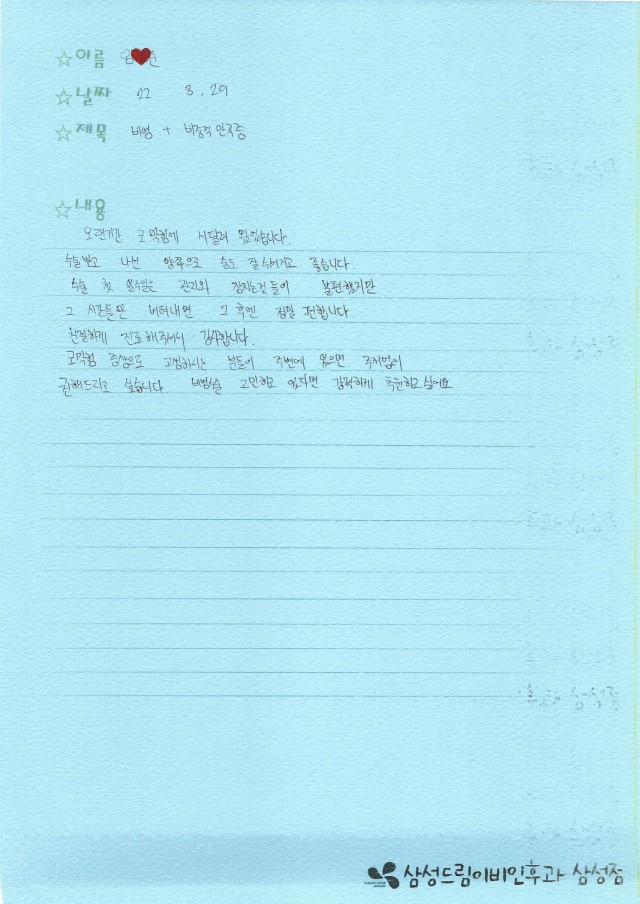 ☆이름 엄❤준
☆날짜 22 3.29
☆제목 비염 + 비중격 만곡증
☆내용
오랜기간 코막힘에 시달려 왔었습니다.
수술받고 나선 양쪽으로 숨도 잘 쉬어지고 좋습니다.
수술 첫 일주일은 관리와 잠자는것 들이 불편했지만
그 시간들만 버텨내면 그 후엔 정말 편합니다
친절하게 진료해주셔서 감사합니다.
코막힘 증상으로 고생하시는 분들이 주변에 있으면 주저없이
권해드리고 싶습니다. 비염수술 고민하고 있다면 강력하게 추천하고싶어요
삼성드림이비인후과 삼성점